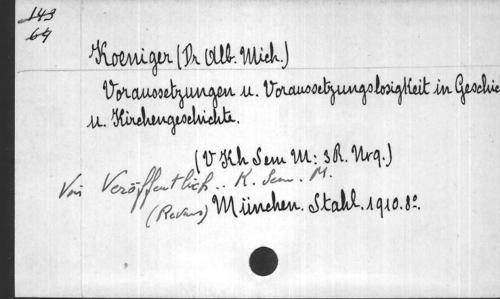 143
64
Koeniger (Dr Alb. Mich.)
Voraussetzungen u. Voraussetzungslosigkeit in Geschic
u. Kirchengeschichte.
(V Kh Sem M: 3R. Nrq.)
Veröffentlich.. K. Sem. M.
München. Stahl. 1910. 8º.